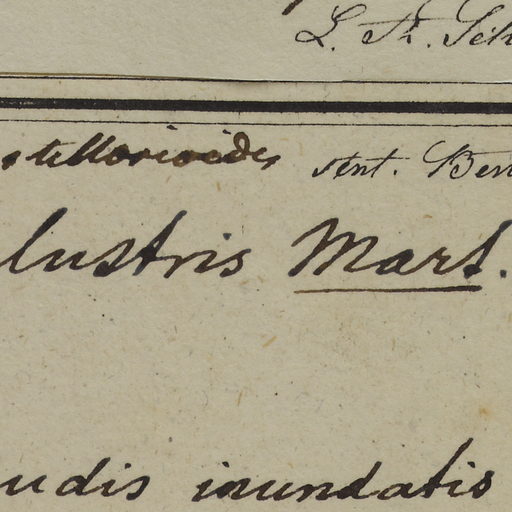 L. Th. Sch
stellarioides Ant. Bert
lustris Mart.
udis inundatis